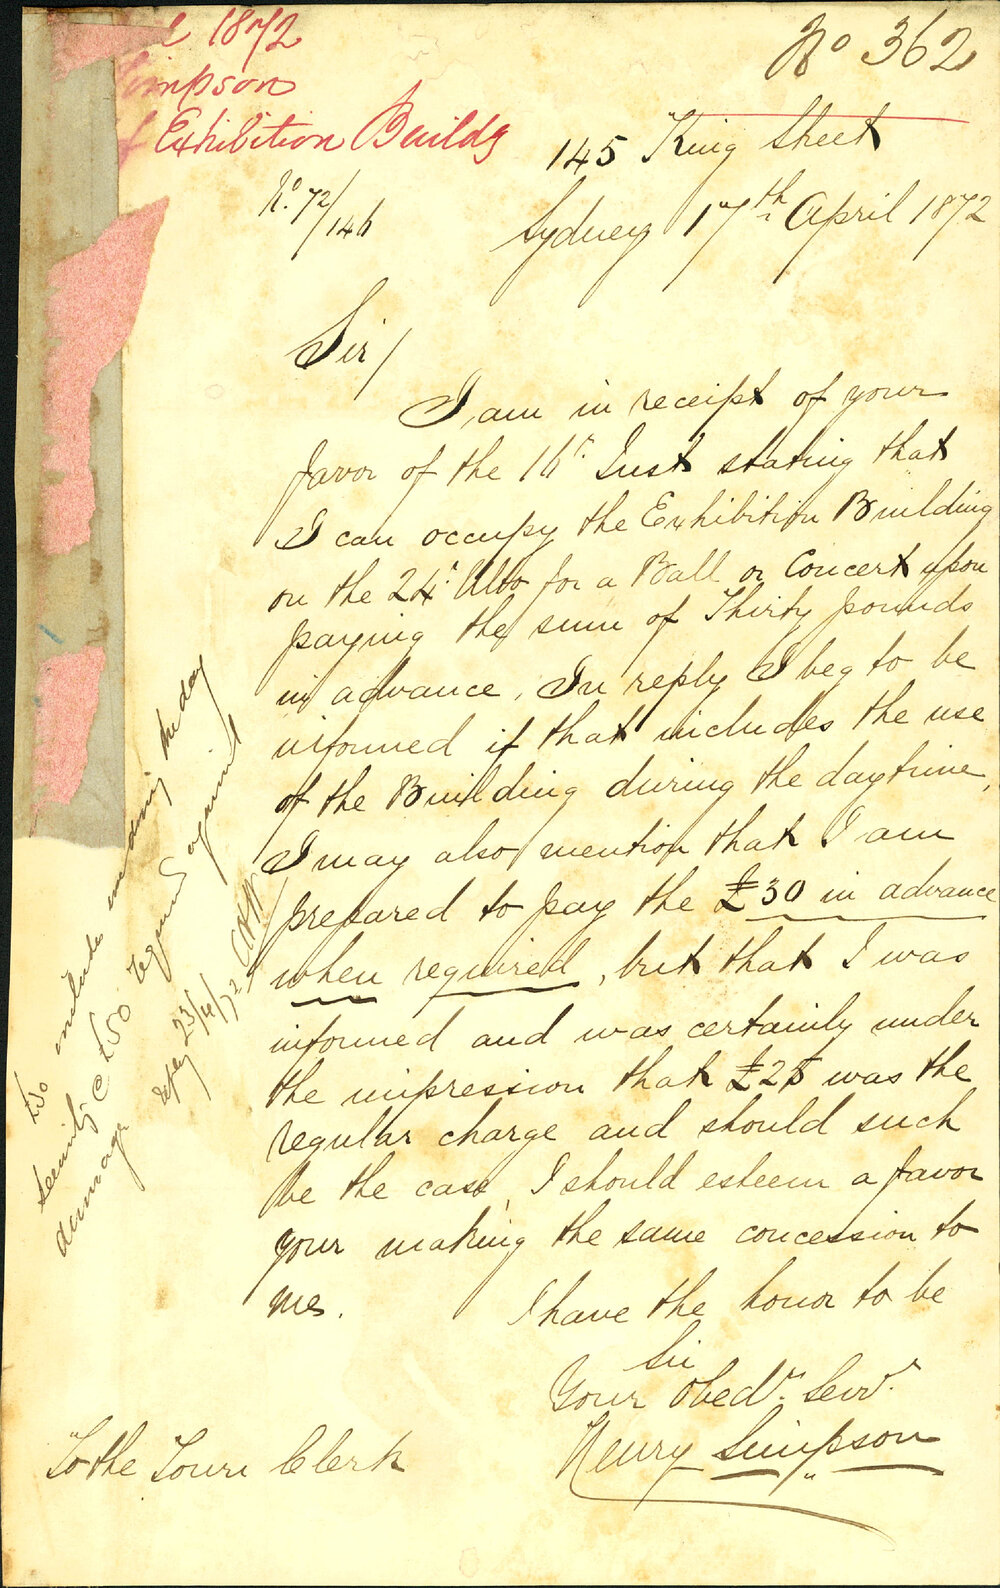 1872
Simpson
Exhibition Buildg
No 362
No. 72/146
145 King Street
Sydney 17th April 1872
Sir/
I am in receipt of your
favor of the 16r. Inst stating that
I can occupy the Exhibition Building
on the 24r. Ulto for a Ball or Concert upon
paying the sum of Thirty pounds
in advance. In reply I beg to be
informed if that includes the use
of the Building during the daytime,
I may also mention that I am
prepared to pay the £30 in advance
when required, but that I was
informed and was certainly under
the impression that £25 was the
regular charge and should such
be the case, I should esteem a favor
your making the same concession to
me.
I have the honor to be
Sir
Your Obedr. Servr.
Henry Simpson
To the Town Clerk
£30 include during the day
Security @ £50 required against
damage
Reply 23/4/72